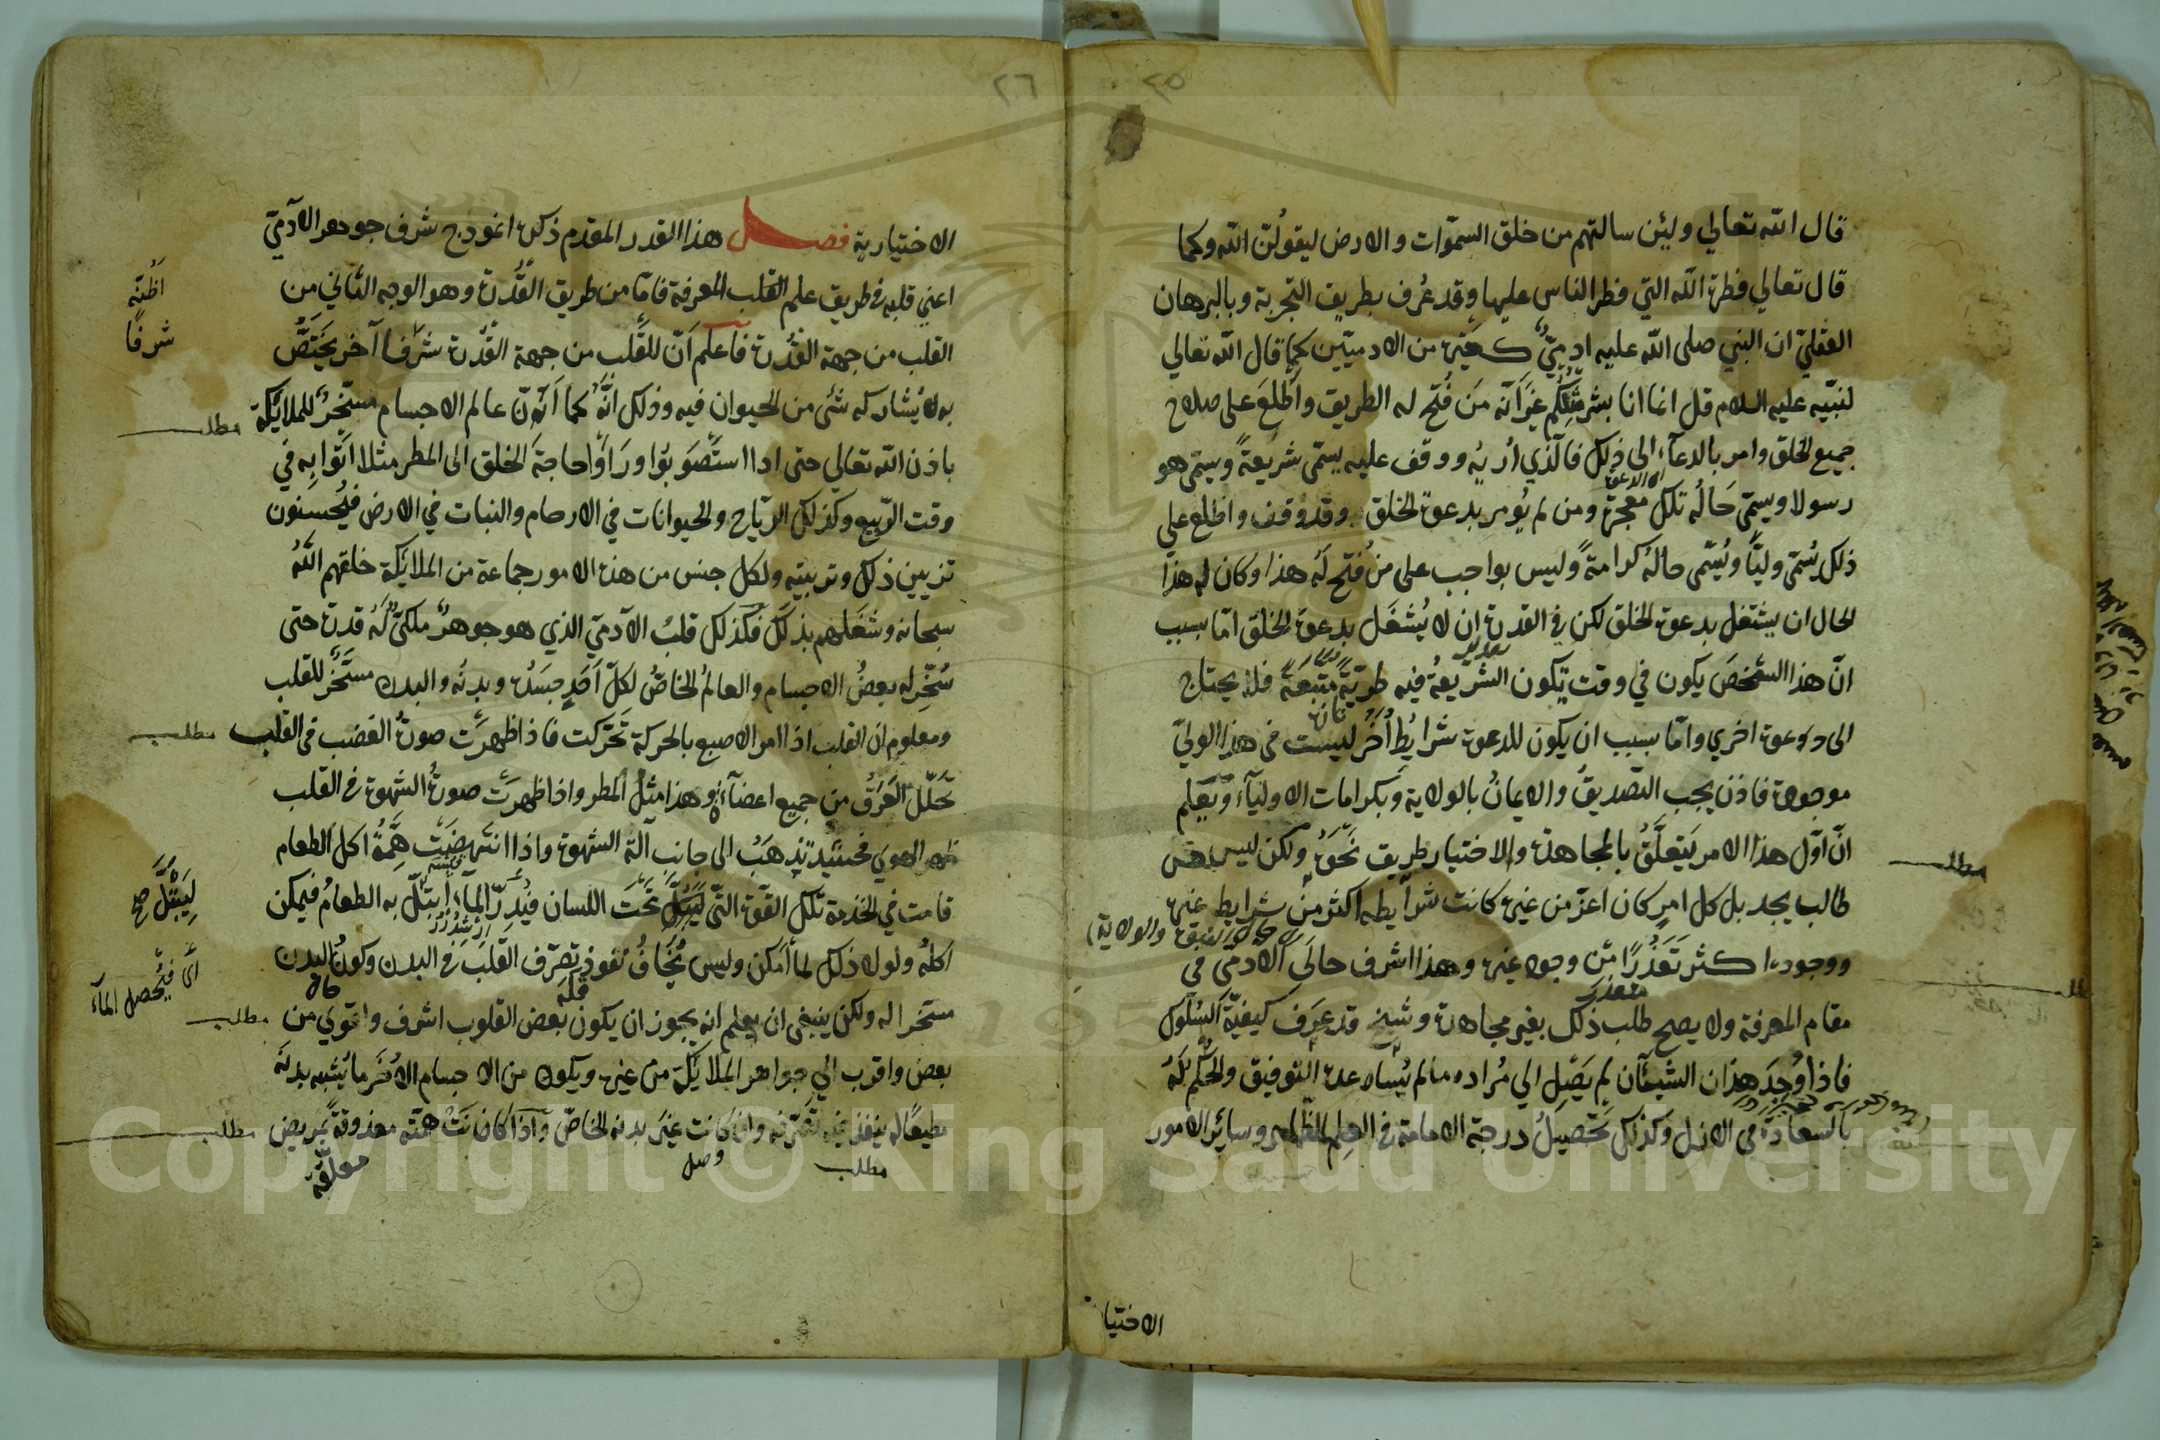 ٢٥
قال الله تعالي ولئن سالتهم من خلق السموات والارض ليقولن الله وكما
قال تعالي فطرة الله التي فطر الناس عليها وقد عرف بطريق التجربة وبالبرهان
العقلي ان النبي صلى الله عليه ادمي كغيره من الادميين كما قال الله تعالي
لنبيه عليه السلام قل انما انا بشر مثلكم غير انه من فتح له الطريق واطلع على صلاح
جميع الخلق وامر بالدعاء الى ذلك فالذي اريه ووقف عليه يسمى شريعة ويسمى هو
رسولا ويسمى حاله تلك معجزة ومن لم يومر بدعوة الخلق وقد وقف واطلع علي
ذلك يسمى وليا ويسمى حاله كرامة وليس بواجب على من فتح له هذا وكان له هذا
الحال ان يشتغل بدعوة الخلق لكن في القدرة ان لا يشغل بدعوة الخلق اما بسبب
ان هذا الشخص يكون في وقت يكون الشريعة فيه طرية متبعة فلا يحتاج
الى دعوة اخري واما بسبب ان يكون للدعوة شرايط أخر ليست في هذا الولي
موجودة فاذن يجب التصديق والايمان بالولاية وبكرامات الاولياء وتعلم
ان اول هذا الامر يتعلق بالمجاهدة والاختيار طريق نحوه ولكن ليس كل
طالب يجد بل كل امر كان اعز من غيره كانت شرايطه اكثر من شرايط غيره
ووجوده اكثر تعذرا من وجود غيره وهذا اشرف حالي الادمي في
مقام المعرفة ولا يصح طلب ذلك بغير مجاهدة وشيخ قد عرف كيفية السلوك
فاذا وجد هذان الشيئان لم يصل الي مراده ما لم يساعده التوفيق والحكم له
بالسعادة في الازل وكذلك تحصيل درجة الامامة في العلم الظاهر وساير الامور
مطلب
الاختيا
٢٦
الاختيارية فصل هذا القدر المقدم ذكره انموذج شرف جوهر الادمي
اعني قلبه في طريق علم القلب المعرفة فاما من طريق القدرة وهو الوجه الثاني من
القلب من جهة القدرة فاعلم ان للقلب من جهة القدرة شرفا آخر يختص
به لا يشاركه شئ من الحيوان فيه وذلك انه كما ان عالم الاجسام مسخر للملايكة
باذن الله تعالي حتى اذا استصوبوا وراوا حاجة الخلق الى المطر مثلا اتوا به في
وقت الربيع وكذلك الرياح والحيوانات في الارحام والنبات في الارض فيحسنون
تزيين ذلك وتربيته ولكل جنس من هذه الامور جماعة من الملايكة خلقهم الله
سبحانه وشغلهم بذلك فكذلك قلب الآدمي الذي هو جوهر ملكي له قدرة حتى
سخر له بعض الاجسام والعالم الخاص لكل احد جسده وبدنه والبدن مسخر للقلب
ومعلوم ان القلب اذا امر الاصبع بالحركة تحركت فاذا ظهرت صورة الغضب في القلب
تحلل العرق من جميع اعضائه وهذا مثل المطر واذا ظهرت صورة الشهوة في القلب
ظهر الهوي فحينئذ تذهب الى جانب آلة الشهوة واذا انتهضت همة اكل الطعام
قامت في الخدمة تلك القوة التي تحت اللسان فيدر الماء ابتل به الطعام فيمكن
اكله ولولا ذلك لما أمكن وليس يخاف نفوذ تصرف القلب في البدن وكون البدن
مسخرا له ولكن ينبغي ان يعلم انه يجوز ان يكون بعض القلوب اشرف واقوي من
بعض واقرب الي جواهر الملايكة من غيره ويكون من الاجسام الاخر ما يشبه بدنه
مطيعا له ينفذ فيه تصرفه وان كانت غير بدنه الخاص واذا كانت همته معذوقة بمريض
اظنه
شرفا
مطلب
مطلب
ليبتل صح
اى فيحصل الماء
مطلب
مطلب
مطلب
معلقة
Copyright © King Saud University